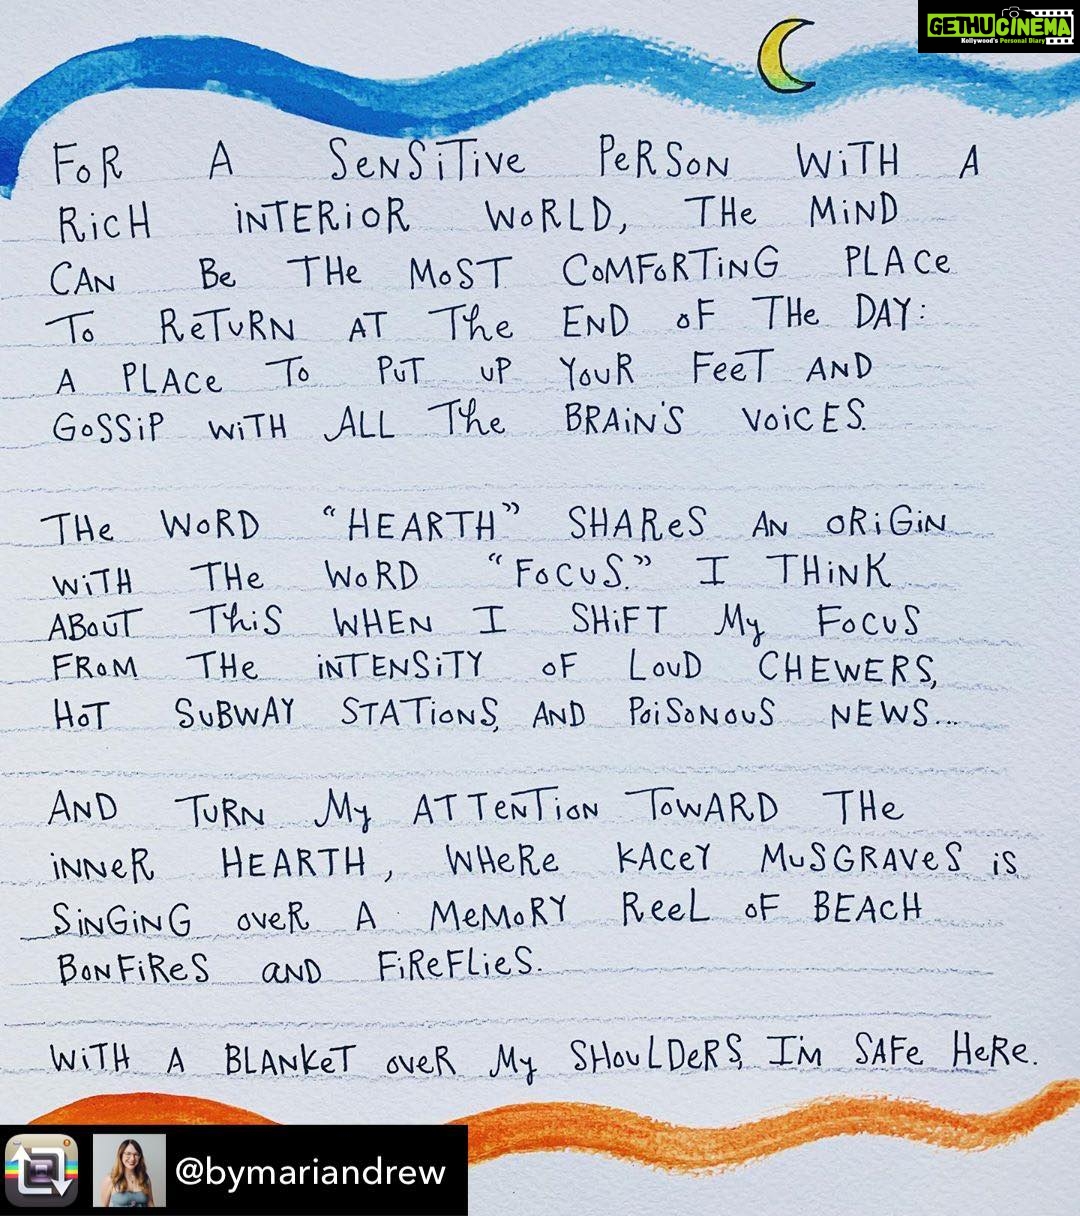 GETHUCINEMA
Kollywood's Personal Diary
FOR A SENSITIVE PERSON WITH A
RICH INTERIOR WORLD, THE MIND
CAN BE THE MOST COMFORTING PLACE
TO RETURN AT THE END OF THE DAY:
A PLACE TO PUT UP YOUR FEET AND
GOSSIP WITH ALL THE BRAIN'S VOICES.
THE WORD "HEARTH" SHARES AN ORIGIN
WITH THE WORD "FOCUS." I THINK
ABOUT THIS WHEN I SHIFT MY FOCUS
FROM THE INTENSITY OF LOUD CHEWERS,
HOT SUBWAY STATIONS, AND POISONOUS NEWS...
AND TURN MY ATTENTION TOWARD THE
INNER HEARTH, WHERE KACEY MUSGRAVES IS
SINGING OVER A MEMORY REEL OF BEACH
BONFIRES AND FIREFLIES.
WITH A BLANKET OVER MY SHOULDERS, I'M SAFE HERE.
@bymariandrew